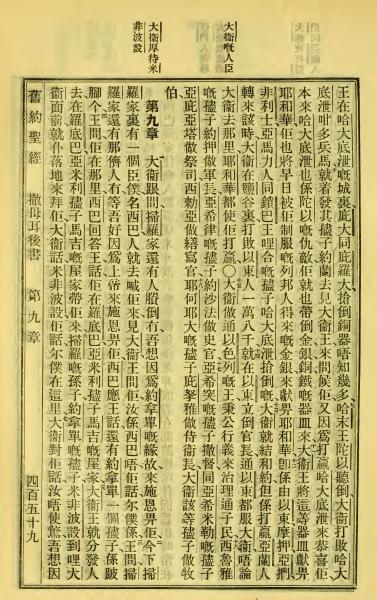 大衞嘅人臣
大衞厚待米
非波設
王在哈大底泄嘅城裏庇大同庇羅大搶倒銅器唔知幾多哈末王陀以聽倒大衞打敗哈大
底泄咁多兵馬就着發其孻子約蘭去見大衞王來問候佢又因爲打贏哈大底泄來恭喜佢
本來哈大底泄也係陀以嘅仇敵佢就也帶倒金銀銅嘅器皿來大衞王將這等器皿獻畀
耶和華佢也將早日被佢制服嘅列邦人得來嘅金銀來獻畀耶和華卽係由以東摩押亞捫
非利士亞馬力人同鎖巴王哩合嘅孻子哈大底泄搶倒嘅大衞就結和約但係打贏亞蘭人
轉來該時大衞在鹽谷裏打敗以東一萬八千就在以東立倒官長通以東都服大衞唔論
大衞去那里耶和華都使佢打贏〇大衞做通以色列嘅王秉公行義來治理通子民西魯雅
嘅孻子約押做軍長亞希律嘅孻子約沙法做史官亞希突嘅孻子撒督同亞希米勒嘅孻子
亞庇亞塔做祭司西勅亞做繕寫官耶何耶大嘅孻子庇拏雅做侍衞長大衞該等孻子做牧
伯
第九章 大衞跟問掃羅家還有人賸倒冇吾想因爲約拿單嘅緣故來施恩畀佢今下掃
羅家裏有一個臣僕名西巴人就去喊佢來見大衞王問佢汝係西巴唔佢話尔僕係王問掃
羅家還有那儕人有等吾好因爲上帝來施恩畀佢西巴應王話還有約拿單一個孻子係跛
腳个王問佢在那里西巴回答王話佢在羅底巴亞米利孻子馬吉嘅屋家大衞王就分發人
去在羅底巴亞米利孻子馬吉嘅屋家帶佢來掃羅嘅孫子約拿單嘅孻子米非波設到哩大
衞面前就仆落地來拜佢大衞話米非波設佢話尔僕在這里大衞對佢話汝唔使驚吾想因
舊約聖經 撒母耳後書 第九章 四百五十九